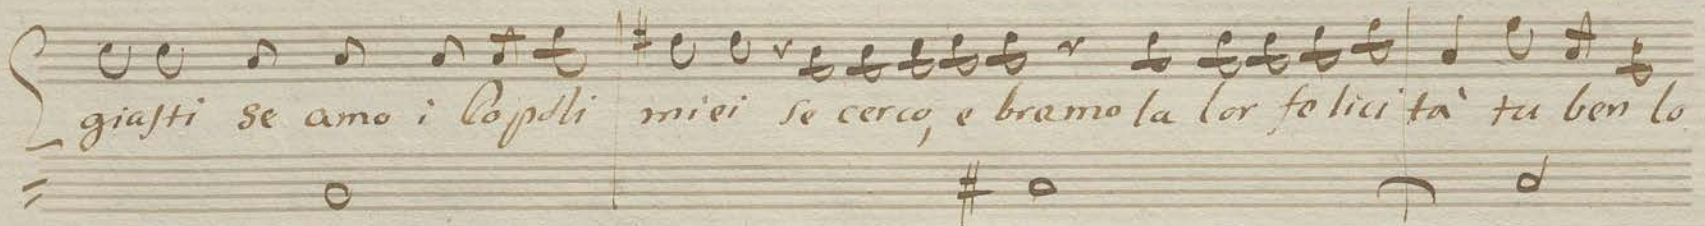 giuſti se amo i Popoli miei ſe cerco, e bramo la lor fe lici tà tu ben lo